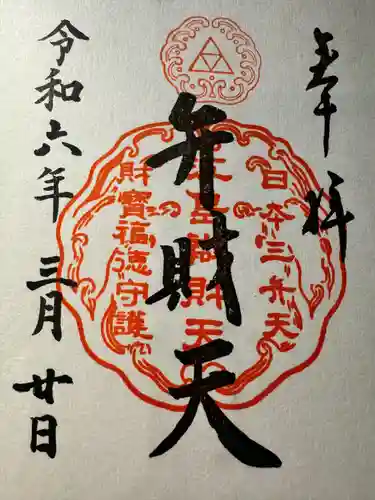 奉拝
日本三弁天
江島辨財天
財寳福徳守護
弁財天
令和六年三月廿日